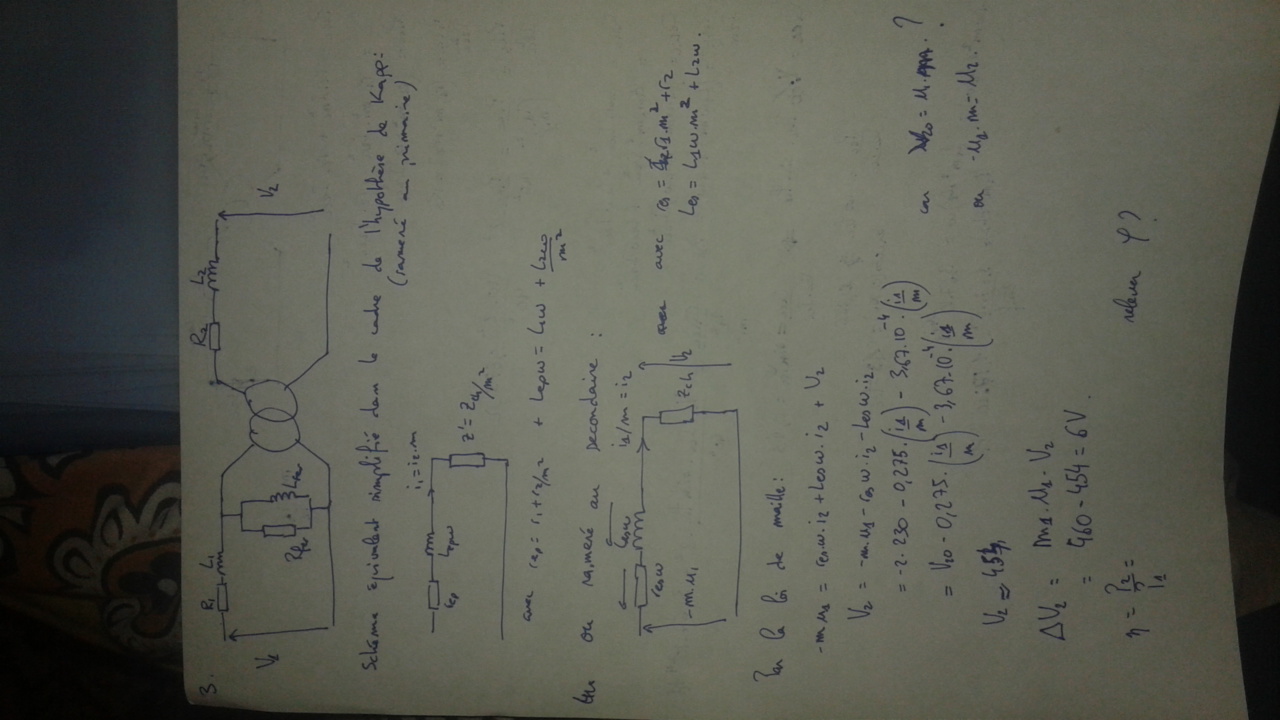 3.
R1 L1
R2 L2
V1
Rfe Lfe
V2
Schéma équivalent simplifié dans le cadre de l'hypothèse de Kapp:
(ramené au primaire)
rep Lepω
i1 = i2.m
Z' = Zch/m²
avec rep = r1 + r2/m² + Lepω = L1ω + L2ω/m²
ou ramené au secondaire :
-m.u1
i1/m = i2
Zch
V2
avec res = r1.m² + r2
Les = L1ω.m² + L2ω.
la loi de maille:
-m u1 = res.i2 + Lesω.i2 + V2
V2 = -m.u1 - res.i2 - Lesω.i2
= -2.230 - 0,275.(i1/m) - 3,67.10⁻⁴.(i1/m)
= V20 - 0,275.(i1/m) - 3,67.10⁻⁴.(i1/m)
car V20 = u1. ?
ou -u1.m = u2.
V2 = 454
ΔV2 = m1.u1 - V2
= 460 - 454 = 6V.
η = P2/P1 =
φ ?